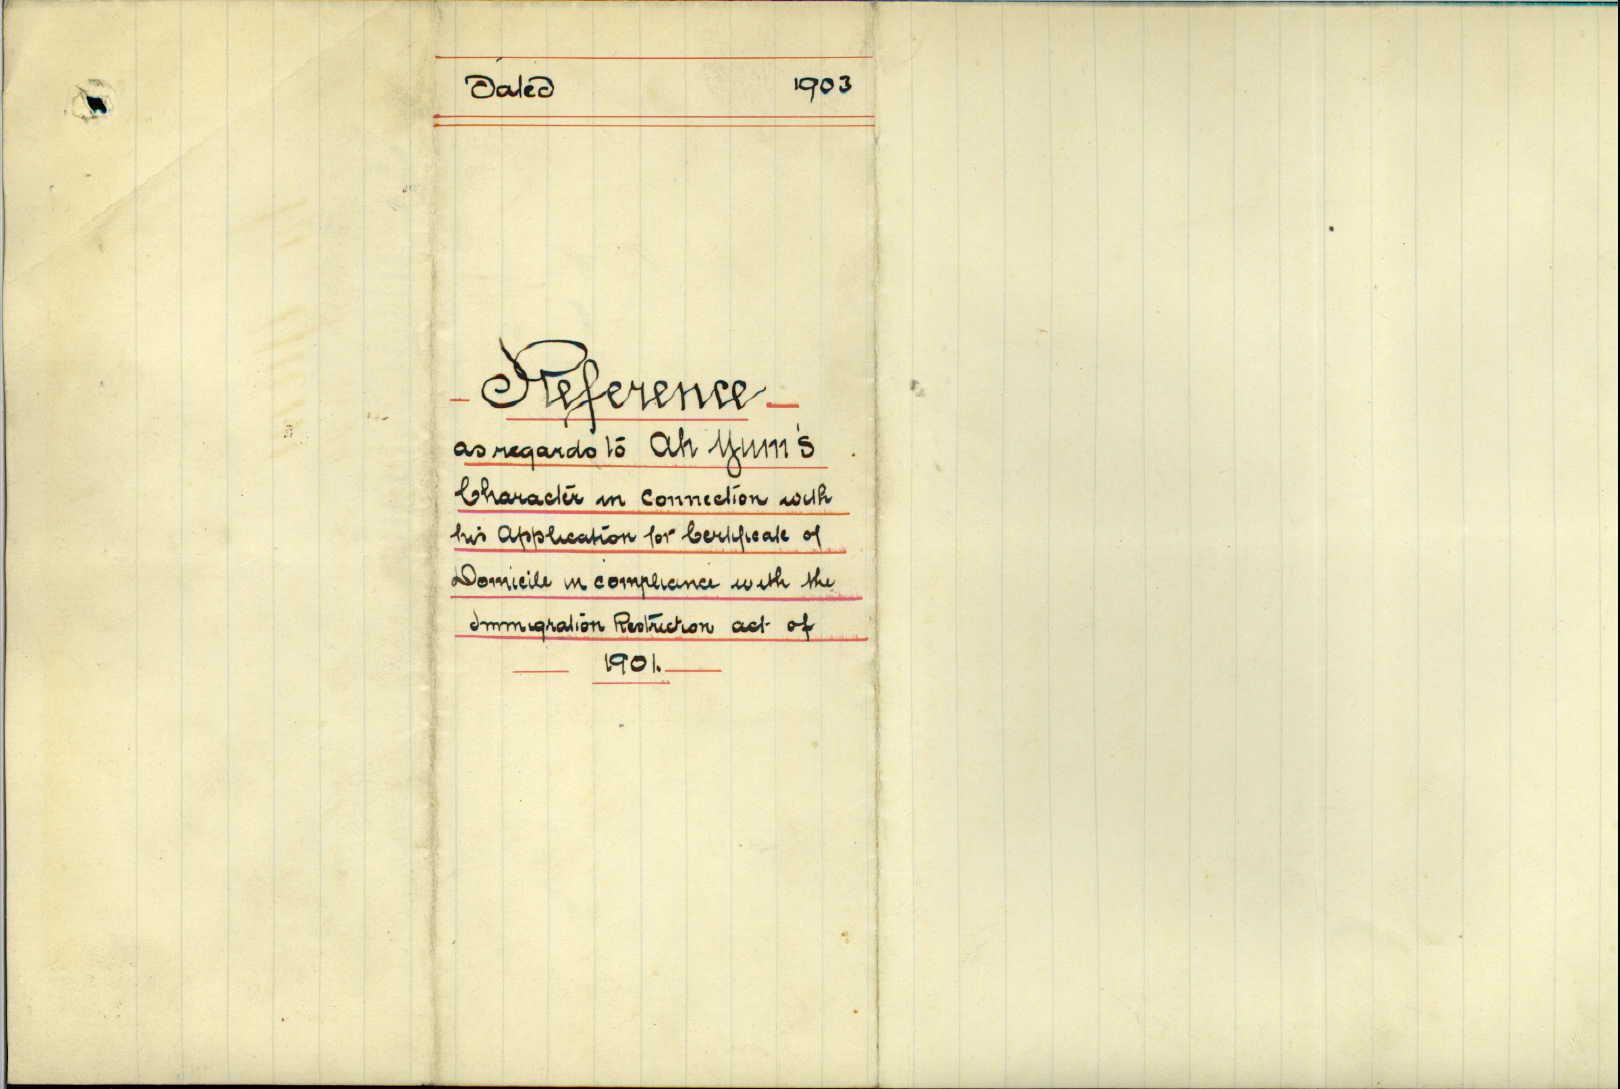 Dated 1903
Reference
as regards to Ah Yum's
Character in Connection with
his Application for Certificate of
Domicile in compliance with the
Immigration Restriction act of
1901.